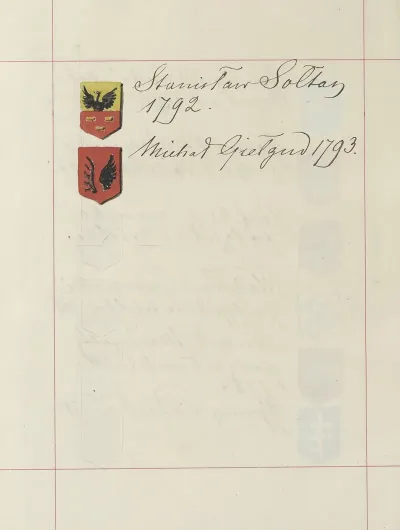 Stanisław Sołtan
1792.
Michał Giełgud 1793.